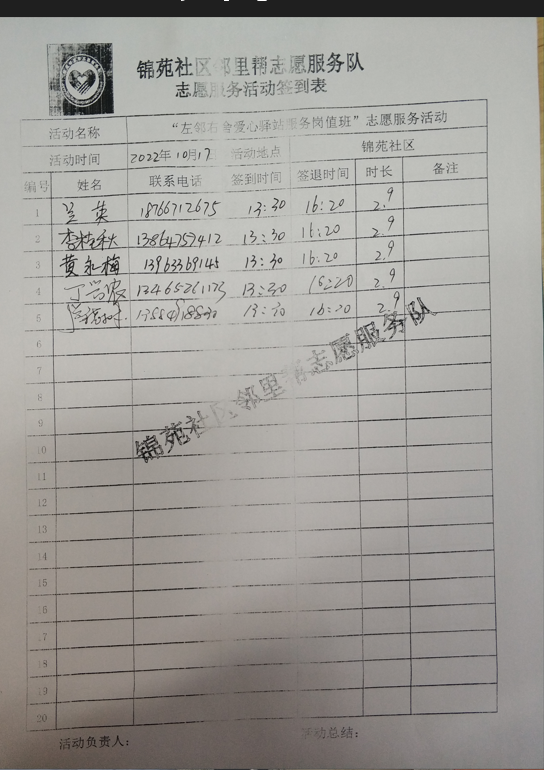 锦苑社区邻里帮志愿服务队
志愿服务活动签到表
活动名称 “左邻右舍爱心驿站服务岗值班”志愿服务活动
活动时间 2022年10月17日 活动地点 锦苑社区
编号 姓名 联系电话 签到时间 签退时间 时长 备注
1 兰英 18766712675 13:30 16:20 2.9
2 李桂秋 13864757412 13:30 16:20 2.9
3 黄永梅 13963369145 13:30 16:20 2.9
4 13:30 16:20 2.9
5 13:30 16:20 2.9
6
7
8
9
10
锦苑社区邻里帮志愿服务队
11
12
13
14
15
16
17
18
19
20
活动负责人: 活动总结: